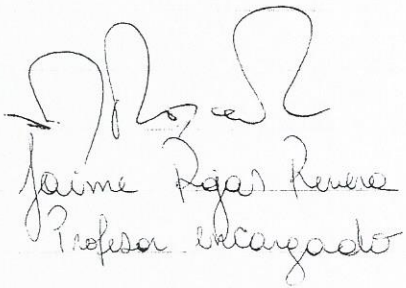 Jaime Rojas Rivera
Profesor encargado